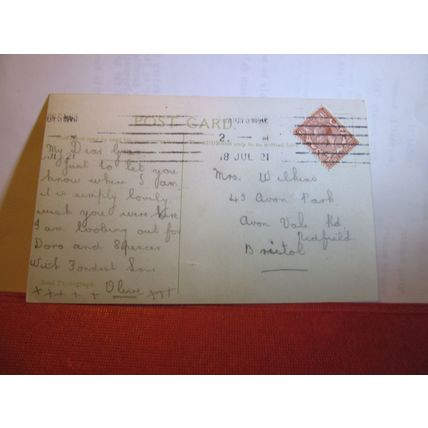 POST CARD
2.
18 JUL 21
My Dear
Just to let you
know where I am
it is simply lovely
wish you were here
I am looking out for
Doro and Spencer
With Fondest Love
Olive
Real Photograph
Mrs. Wilkins
45 Avon Park
Avon Vale Rd
Redfield
Bristol